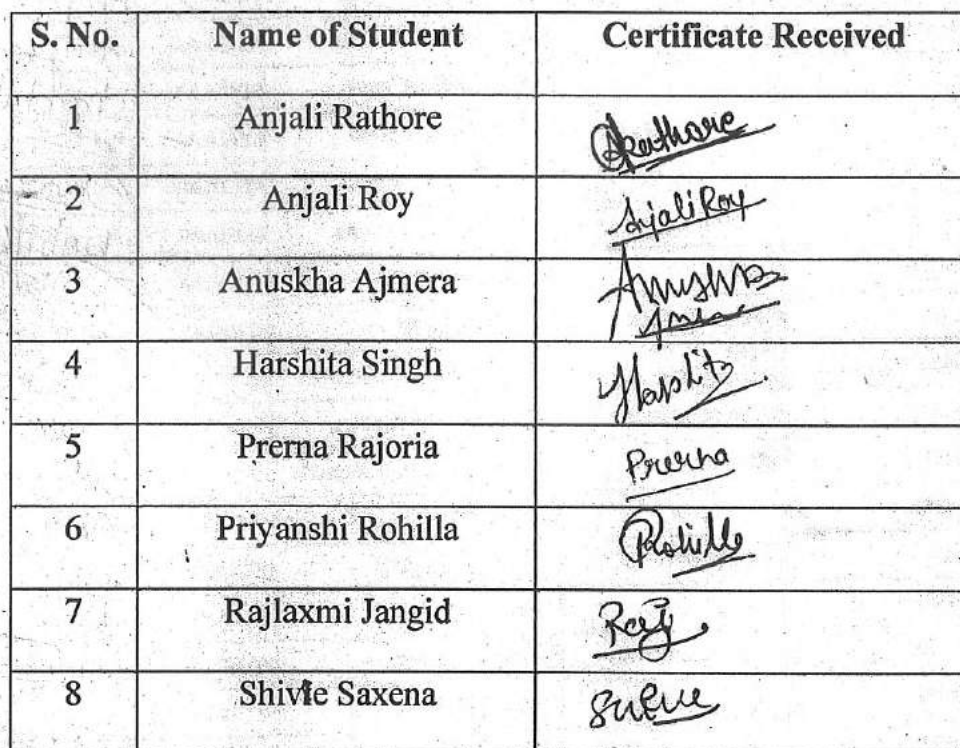 S. No. Name of Student Certificate Received
1 Anjali Rathore Rathore
2 Anjali Roy Anjali Roy
3 Anuskha Ajmera Anushka
4 Harshita Singh Harshita
5 Prerna Rajoria Prerna
6 Priyanshi Rohilla Rohilla
7 Rajlaxmi Jangid Raj
8 Shivie Saxena